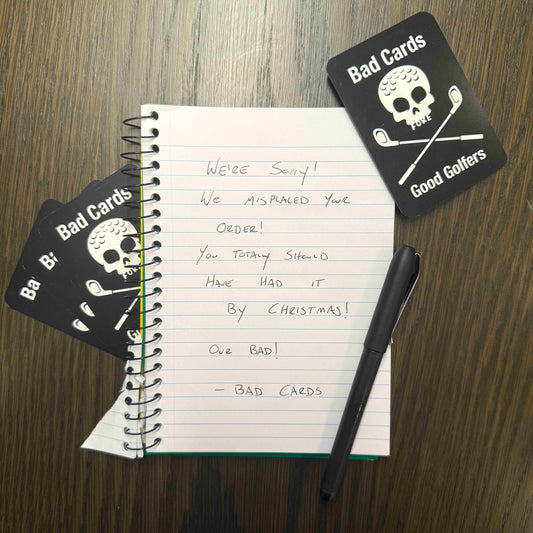 Bad Cards
FORE
Good Golfers
WE'RE SORRY!
WE MISPLACED YOUR
ORDER!
YOU TOTALLY SHOULD
HAVE HAD IT
BY CHRISTMAS!
OUR BAD!
- BAD CARDS
Bad Cards
FORE
G
Ba
Ba